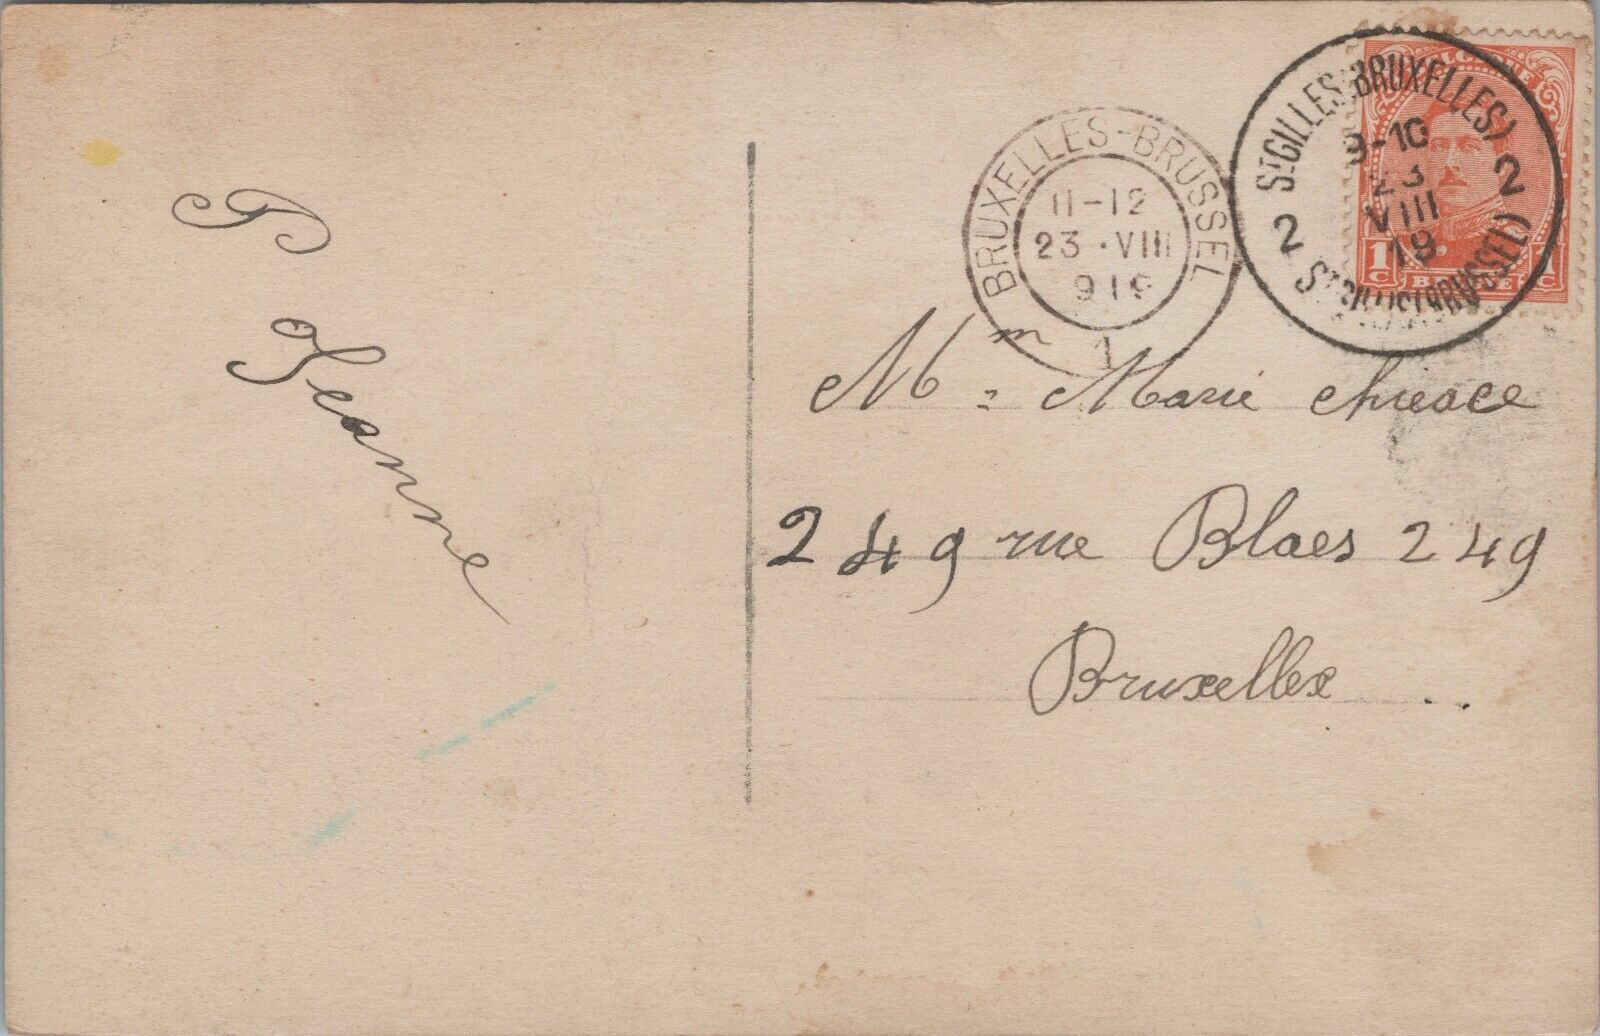 P Jeanne
BRUXELLES-BRUSSEL
11-12
23·VIII
919
1
ST GILLES (BRUXELLES)
9-10
23
VIII
19
2 2
ST GILLIS (BRUSSEL)
1C 1C
Mm: Marie
249 rue Blaes 249
Bruxelles